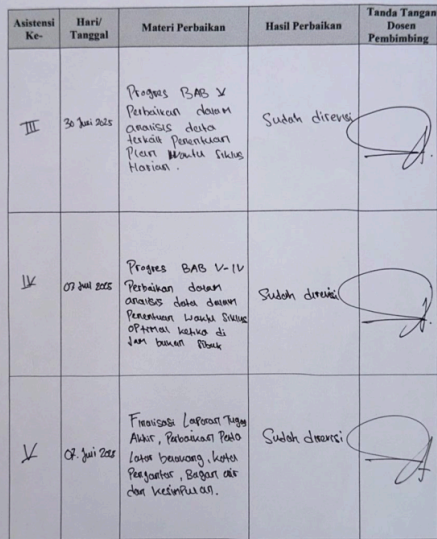 Asistensi Ke-
Hari/ Tanggal
Materi Perbaikan
Hasil Perbaikan
Tanda Tangan Dosen Pembimbing
III
30 Juni 2025
Progres BAB V
Perbaikan dalam
analisis data
terkait Penentuan
Plan Waktu Siklus
Harian.
Sudah direvisi
IV
07 Juli 2025
Progres BAB V-IV
Perbaikan dalam
analisis data dalam
Penentuan Waktu Siklus
OPtimal ketika di
Jam bukan Sibuk
Sudah direvisi
V
Juli 2025
Finalisasi Laporan Tugas
Akhir, Perbaikan Pada
Latar belakang, Kata
Pengantar, Bagan alir
dan Kesimpulan.
Sudah direvisi